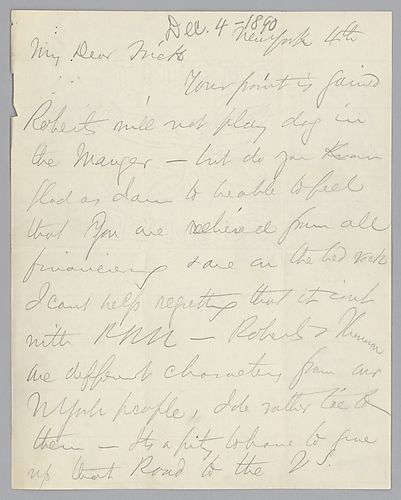 Dec. 4 - 1890
New York 4th
My Dear Frick
Your point is gained
Roberts will not play dog in
the Manger — but do you know
glad as I am to be able to feel
that you are relieved from all
financiering save on the bed rock
I cant help regretting that it isnt
with PRR — Roberts &
are different characters from our
N York people, I'de rather tie to
them — Its a pity to have to give
up that Road to the